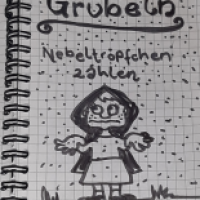 Grübeln
Nebeltröpfchen
zählen